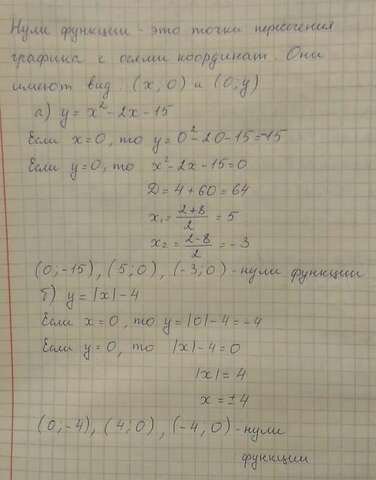 Нули функции - это точки пересечения
графика с осями координат. Они
имеют вид: (x, 0) и (0; y)
а) y = x² - 2x - 15
Если x = 0, то y = 0² - 2·0 - 15 = -15
Если y = 0, то x² - 2x - 15 = 0
D = 4 + 60 = 64
x₁ = (2+8)/2 = 5
x₂ = (2-8)/2 = -3
(0; -15), (5; 0), (-3; 0) - нули функции
б) y = |x| - 4
Если x = 0, то y = |0| - 4 = -4
Если y = 0, то |x| - 4 = 0
|x| = 4
x = ±4
(0; -4), (4; 0), (-4, 0) - нули
функции